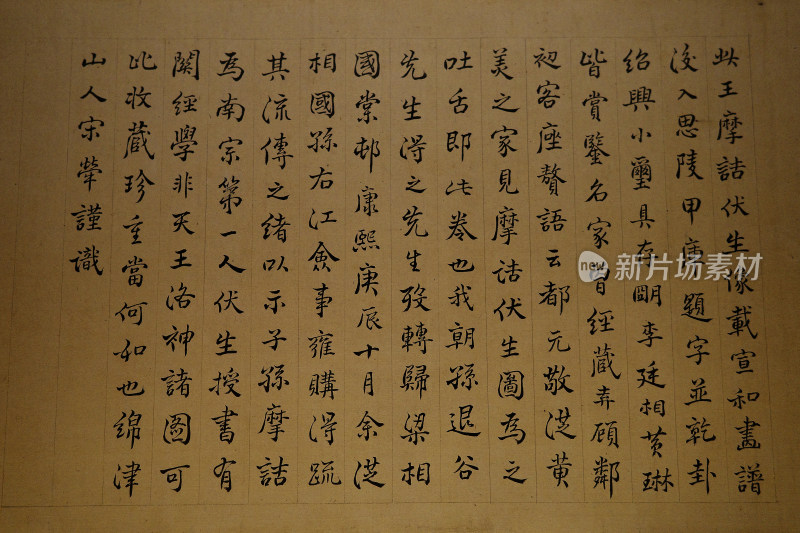 此王摩詰伏生像載宣和畫譜
後入思陵甲庫題字並乾卦
紹興小璽具存明李廷相黃琳
皆賞鑒名家曾經藏弆顧鄰
初客座贅語云都元敬從黃
美之家見摩詰伏生圖為之
吐舌即此卷也我朝孫退谷
先生得之先生歿轉歸梁相
國棠邨康熙庚辰十月余從
相國孫右江僉事雍購得疏
其流傳之緒以示子孫摩詰
為南宗第一人伏生授書有
關經學非天王洛神諸圖可
比收藏珍重當何如也綿津
山人宋犖謹識
new 新片场 素材